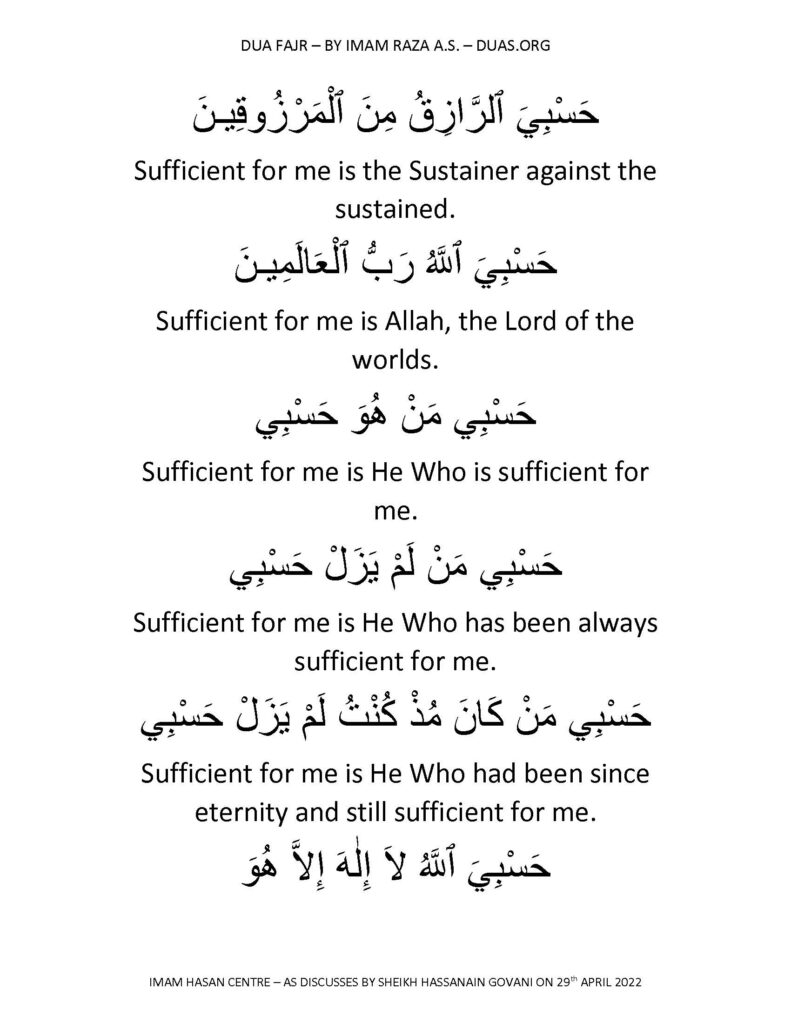 DUA FAJR – BY IMAM RAZA A.S. – DUAS.ORG
حَسْبِيَ ٱلرَّازِقُ مِنَ ٱلْمَرْزُوقِيـنَ
Sufficient for me is the Sustainer against the
sustained.
حَسْبِيَ ٱللَّهُ رَبُّ ٱلْعَالَمِيـنَ
Sufficient for me is Allah, the Lord of the
worlds.
حَسْبِي مَنْ هُوَ حَسْبِي
Sufficient for me is He Who is sufficient for
me.
حَسْبِي مَنْ لَمْ يَزَلْ حَسْبِي
Sufficient for me is He Who has been always
sufficient for me.
حَسْبِي مَنْ كَانَ مُذْ كُنْتُ لَمْ يَزَلْ حَسْبِي
Sufficient for me is He Who had been since
eternity and still sufficient for me.
حَسْبِيَ ٱللَّهُ لاَ إِلٰهَ إِلاَّ هُوَ
IMAM HASAN CENTRE – AS DISCUSSES BY SHEIKH HASSANAIN GOVANI ON 29th APRIL 2022